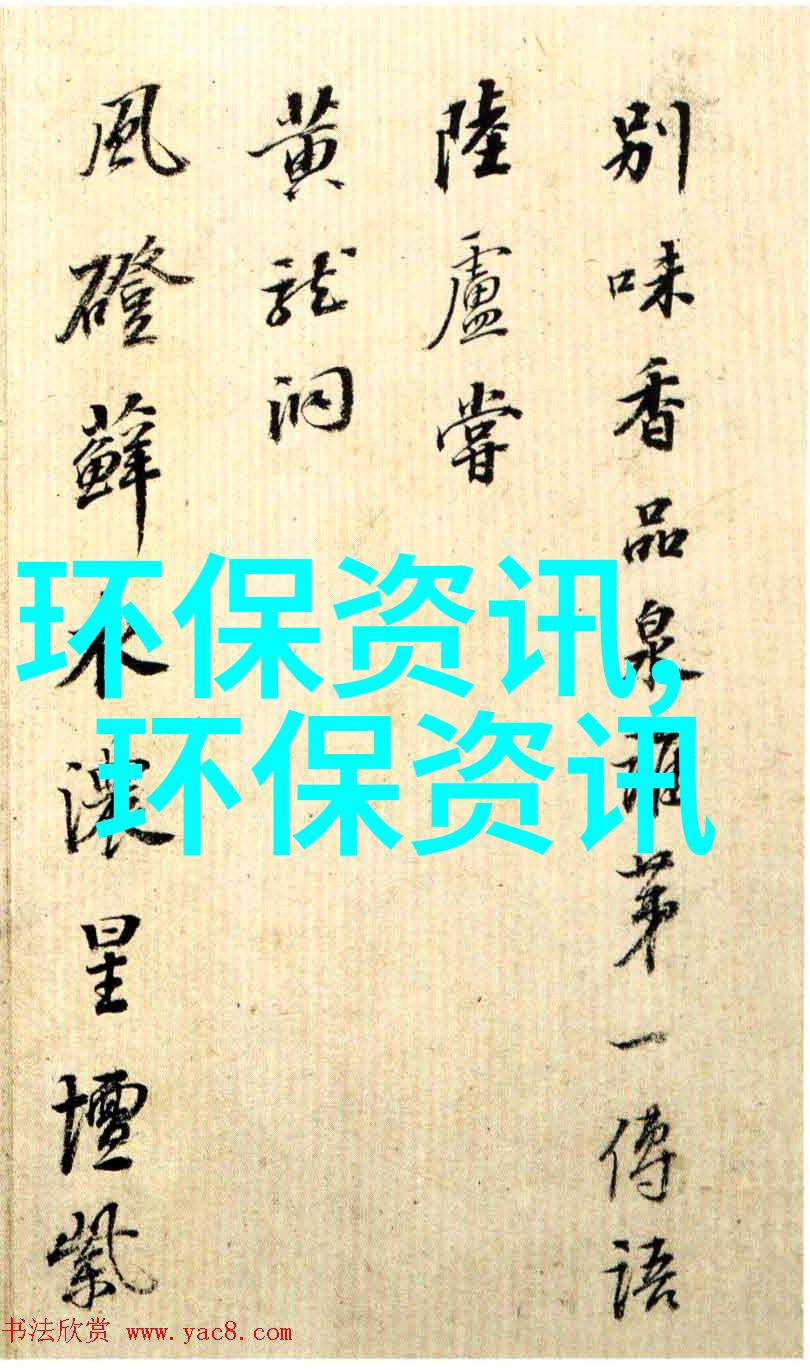 别味香品泉谁第一傳語
陸盧嘗
黄龍洞
風磴蘚衣濃星壇紫
环保资讯,
环保资讯
书法欣赏 www.yac8.com